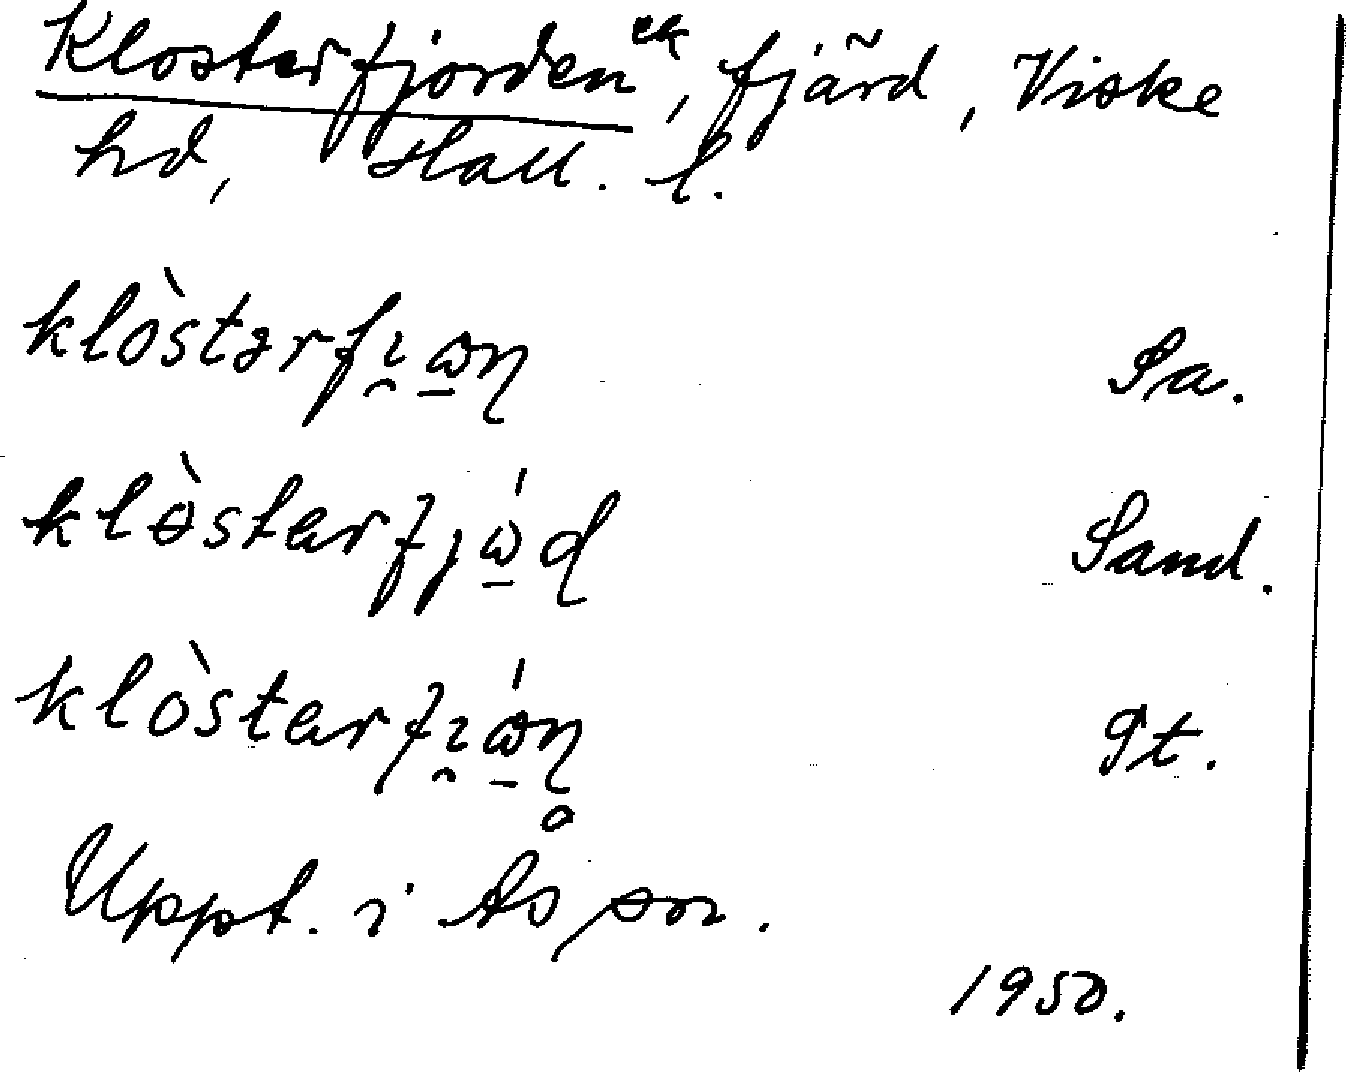 Klosterfjorden ek, fjärd, Viske
hd, Hall. l.
klòstərfı̯ω̱ɳ Sa.
klòstərfjώ̱ɖ Sand.
klòstərfı̯ώ̱ɳ Pt.
Uppt. i Ås sn.
1950.